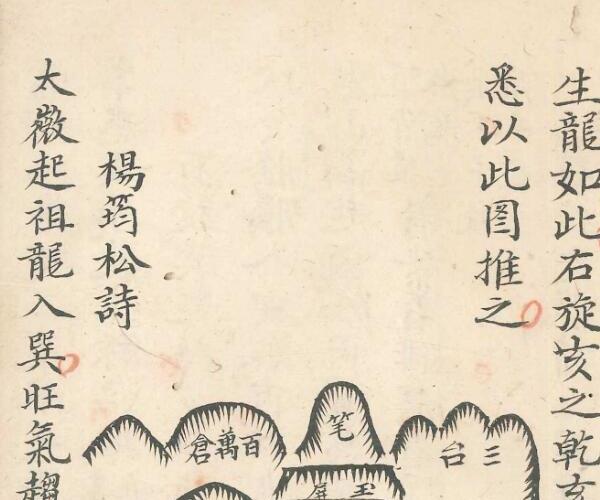 生龍如此右旋亥之乾亥
悉以此图推之
楊筠松詩
太微起祖龍入巽旺氣趨
三台
笔
百萬倉
玉屏